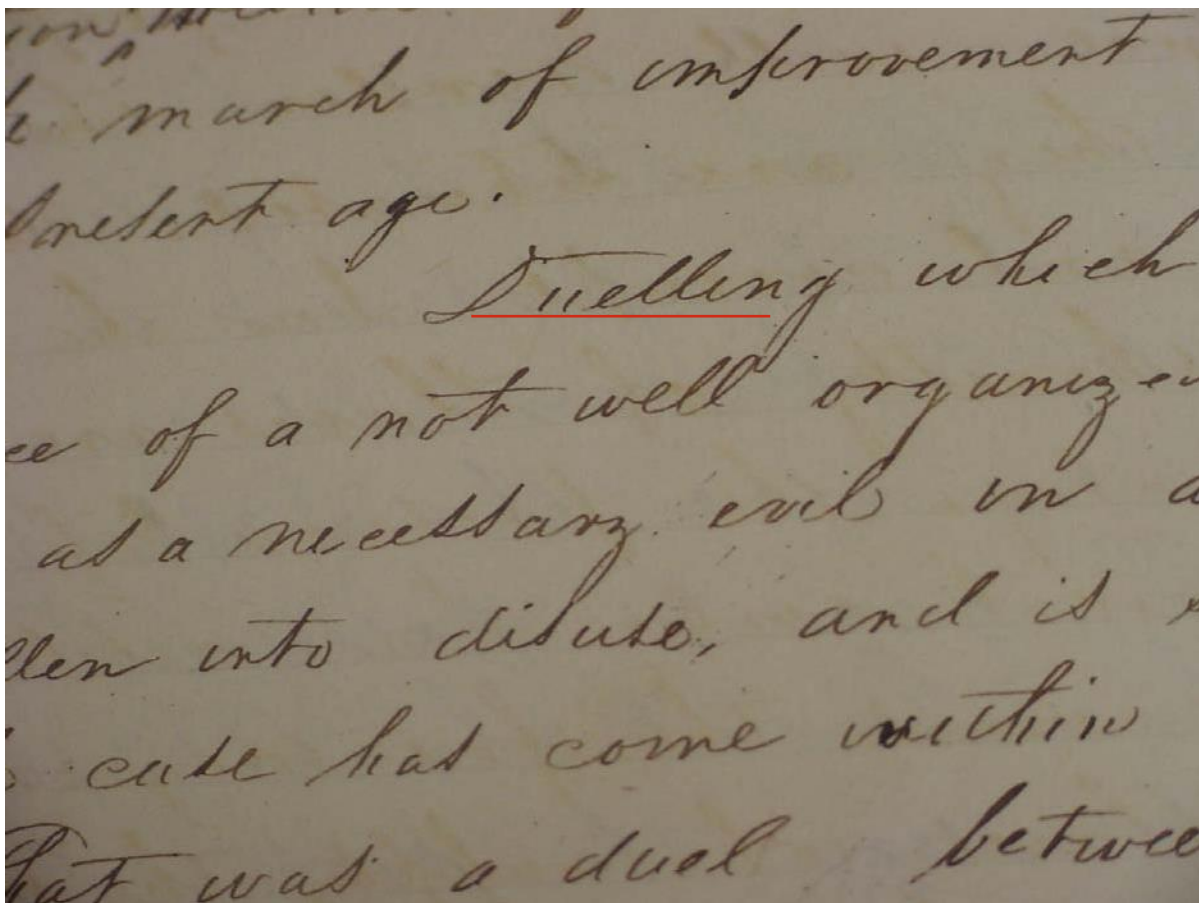 march of improvement
present age.
Duelling which
of a not well organized
as a necessary evil in a
into disuse, and is
case has come within
that was a duel between